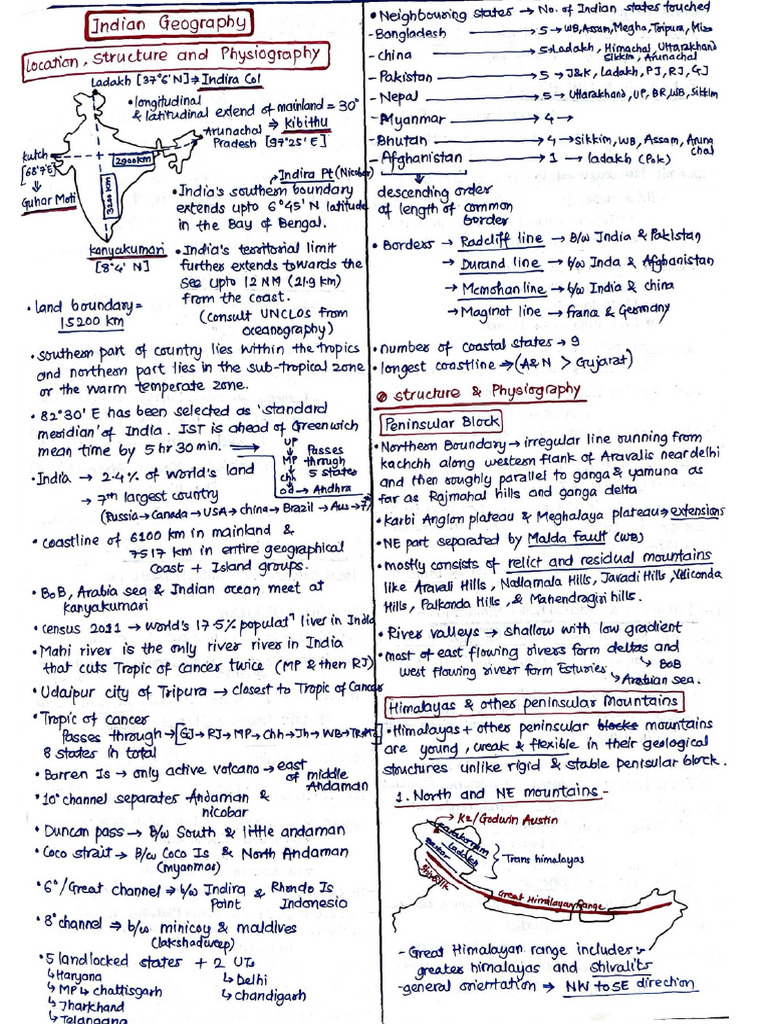 Indian Geography
Location, Structure and Physiography
Ladakh [37°6'N] ⇒ Indira Col
•longitudinal
& latitudinal extend of mainland = 30°
Arunachal ⇒ Kibithu
Pradesh [97°25'E]
Kutch
[68°7'E]
Guhar Moti
2900km
3200 KM
Kanyakumari
[8°4' N]
Indira Pt (Nicobar)
•India's southern boundary
extends upto 6°45' N latitude
in the Bay of Bengal.
•India's territorial limit
further extends towards the
sea upto 12 NM (21.9 km)
from the coast.
(consult UNCLOS from
oceanography)
•land boundary=
15200 km
•southern part of country lies within the tropics
and northern part lies in the sub-tropical zone
or the warm temperate zone.
•82°30' E has been selected as 'standard
meridian' of India. IST is ahead of Greenwich
mean time by 5 hr 30 min. ⇒
UP
MP
chh
od → Andhra
Passes
through
5 states
•India → 2.4% of world's land
→ 7th largest country
(Russia→Canada→USA→china→Brazil→Aus→
•coastline of 6100 km in mainland &
7517 km in entire geographical
Coast + Island groups.
•BoB, Arabia sea & Indian ocean meet at
kanyakumari
•census 2011 → world's 17.5% populatn lives in India
•Mahi river is the only river river in India
that cuts Tropic of cancer twice (MP & then RJ)
•Udaipur city of Tripura → closest to Tropic of Cancer
•Tropic of cancer
Passes through→[GJ→RJ→MP→Chh→Jh→WB→TR→Mz]
8 states in total
•Barren Is → only active volcano → east
of middle
Andaman
•10° channel separates Andaman &
nicobar
•Duncan pass → B/w South & little andaman
•Coco strait → B/w Coco Is & North Andaman
(myanmar)
•6°/Great channel → b/w Indira & Rhondo Is
Point Indonesio
•8° channel → b/w minicoy & maldives
(lakshadweep)
•5 landlocked states + 2 UTs
Haryana
MP → chattisgarh
Jharkhand
Telangana
Delhi
chandigarh
•Neighbouring states → No. of Indian states touched
-Bangladesh → 5→WB,Assam,Megha,Tripura,Mizo
-China → 5→Ladakh, Himachal, Uttarakhand
Sikkim, Arunachal
-Pakistan → 5→J&K, Ladakh, PJ, RJ, GJ
-Nepal → 5→Uttarakhand, UP, BR, WB, Sikkim
-Myanmar → 4→
-Bhutan → 4→sikkim, WB, Assam, Aruna
chal
-Afghanistan → 1→ladakh (Pok)
descending order
of length of common
border
•Borders → Radcliff line → B/w India & Pakistan
→ Durand line → b/w Inda & Afghanistan
→ Mcmohan line → b/w India & china
→ Maginot line → frana & Germany
•number of coastal states → 9
•longest coastline → (A&N > Gujarat)
structure & Physiography
Peninsular Block
•Northern Boundary → irregular line running from
kachchh along western flank of Aravalis near delhi
and then roughly parallel to ganga & yamuna as
far as Rajmahal hills and ganga delta
•Karbi Anglon plateau & Meghalaya plateau→extensions
•NE part separated by Malda Fault (WB)
•mostly consists of relict and residual mountains
like Aravali Hills, Nallamala Hills, Javadi Hills, Veliconda
Hills, Palkonda Hills, & Mahendragiri hills.
•River valleys → shallow with low gradient
•most of east flowing rivers form deltas and
BoB
west flowing rivers form Esturies
Arabian sea.
Himalayas & other peninsular Mountains
•Himalayas + other peninsular blocks mountains
are young, weak & flexible in their geological
structures unlike rigid & stable penisular block.
1. North and NE mountains -
K2/Godwin Austin
Karakorram
Ladakh
Zaskar
Shivalik
Trans himalayas
Great Himalayan Range
-Great Himalayan range includes :-
greater himalayas and Shivaliks
-general orientation → NW to SE direction